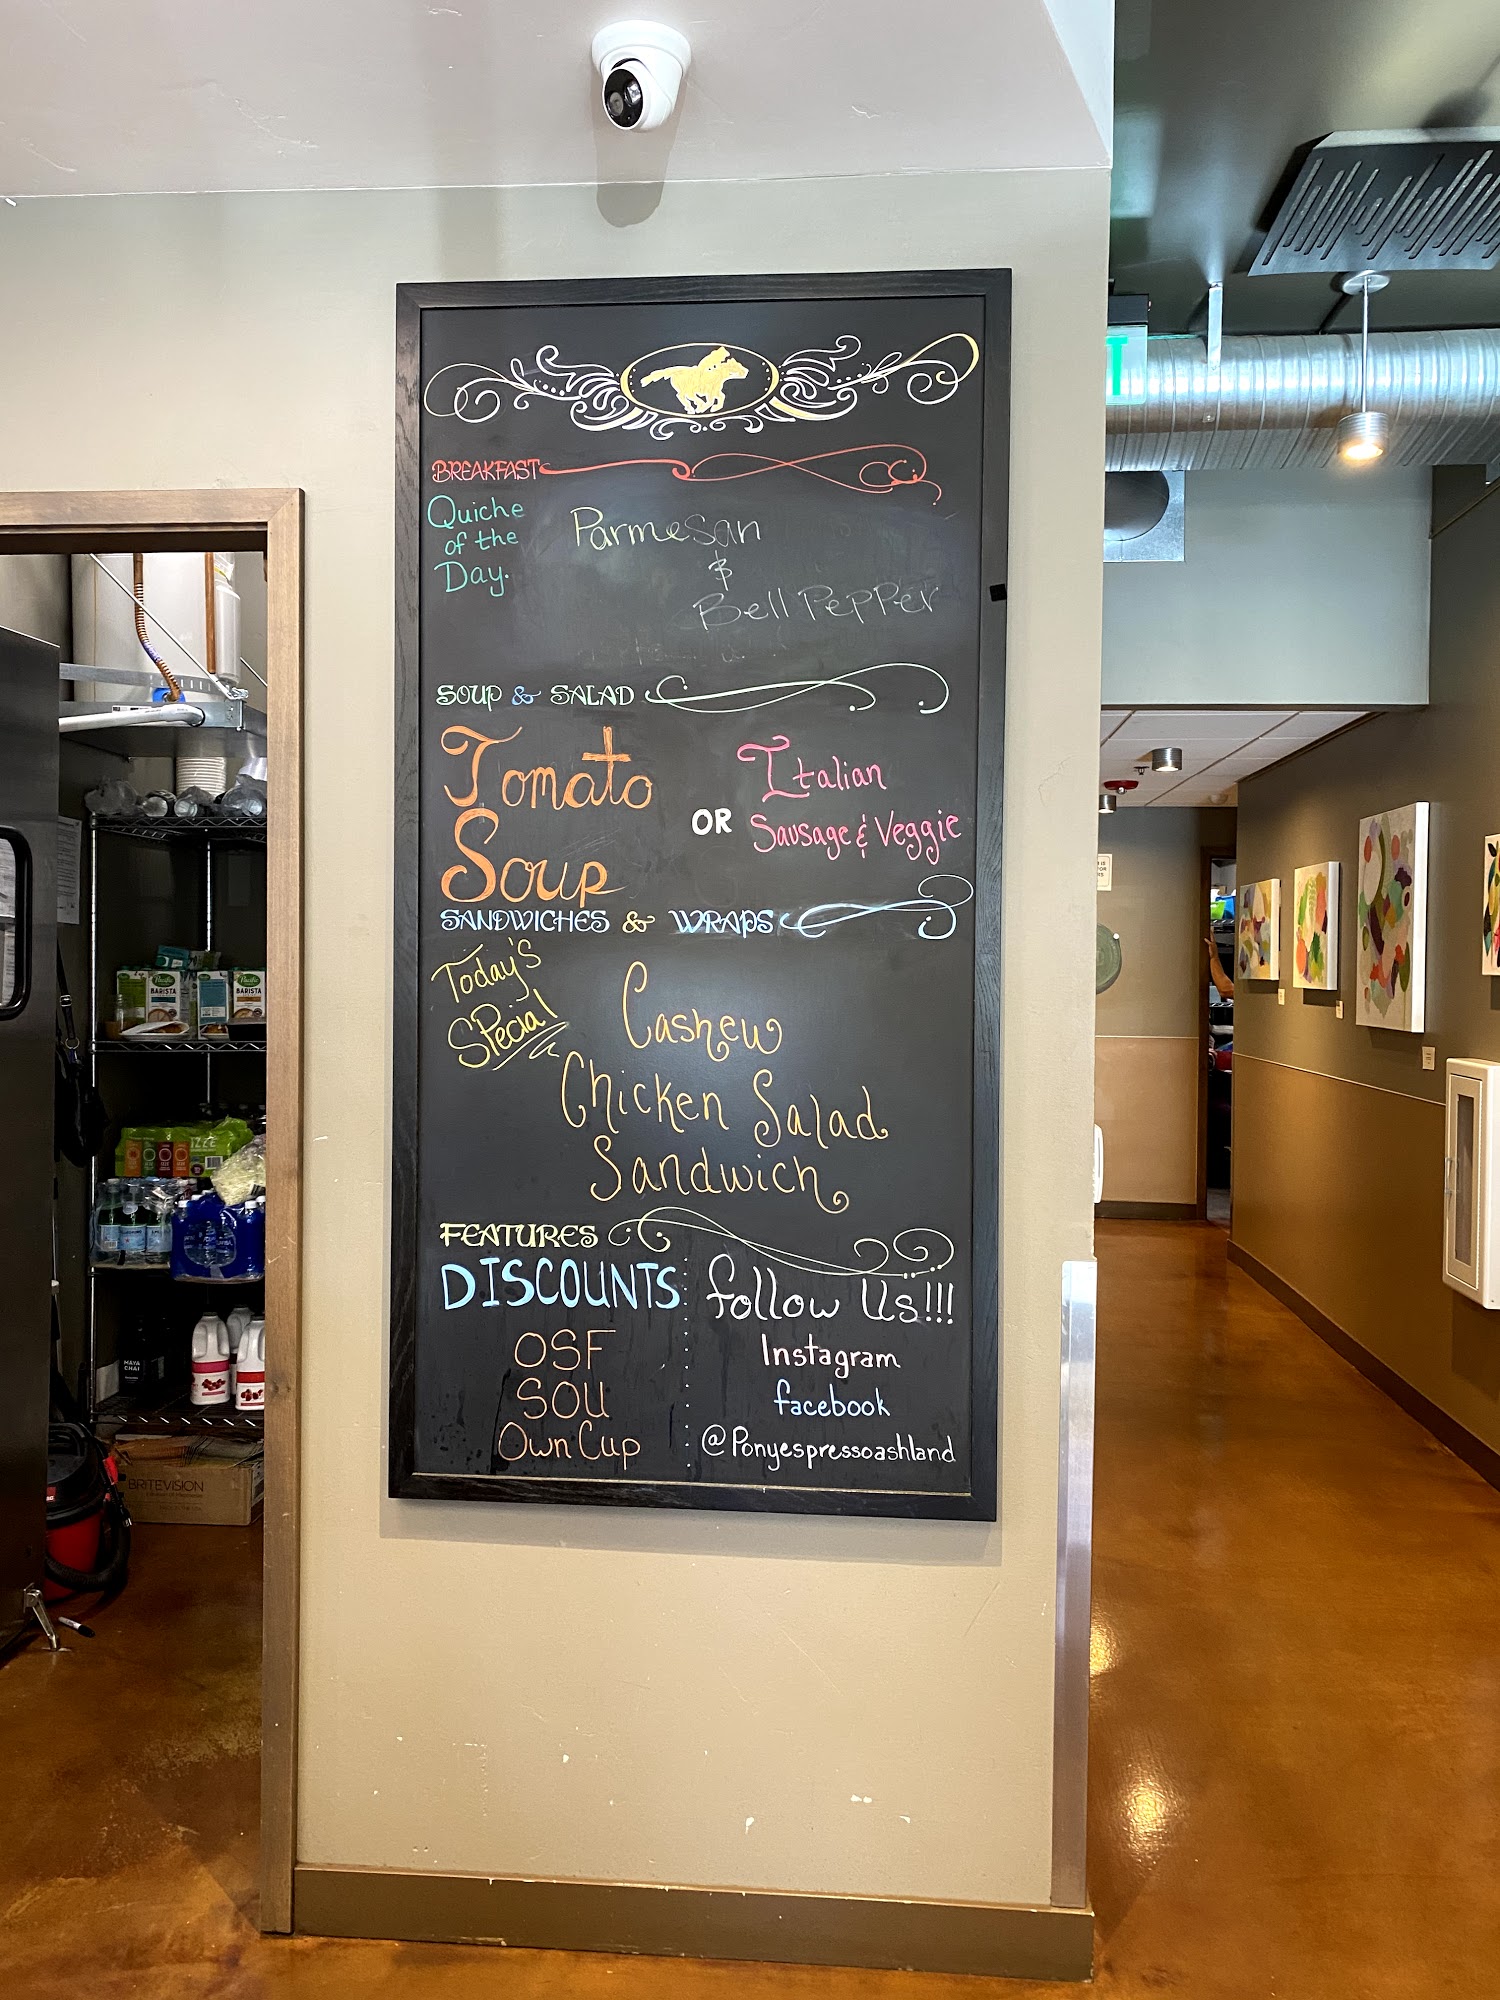 BREAKFAST
Quiche
of the
Day.
Parmesan
&
Bell Pepper
SOUP & SALAD
Tomato
Soup
OR
Italian
Sausage & Veggie
SANDWICHES & WRAPS
Today's
Special
Cashew
Chicken Salad
Sandwich
FEATURES
DISCOUNTS
OSF
SOU
Own Cup
follow Us!!!
Instagram
facebook
@Ponyespressoashland
Pacific
BARISTA
BARISTA
IZZE
MAYA
CHAI
BRITEVISION
T